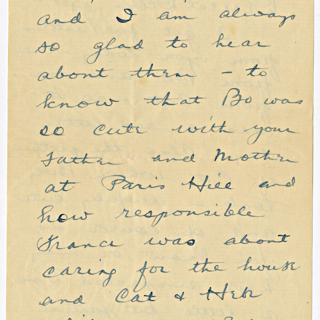 and I am always
so glad to hear
about them - to
know that Bo was
so cute with your
Father and Mother
at Paris Hill and
how responsible
Franci was about
caring for the house
and Cat &